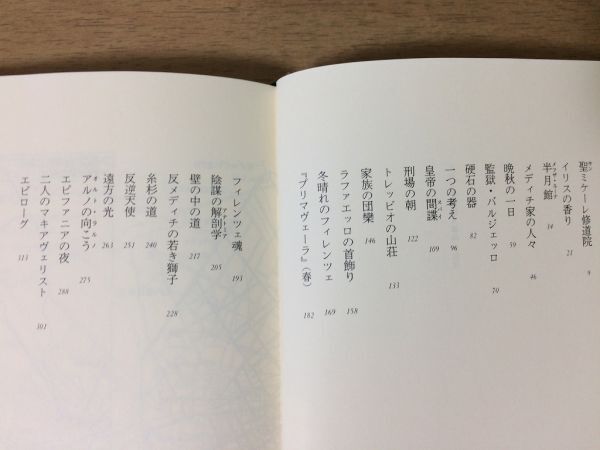 聖ミケーレ修道院 9
イリスの香り 21
半月館 34
メディチ家の人々 46
晩秋の一日 59
監獄・バルジェッロ 70
硬石の器 82
一つの考え 96
皇帝の間諜 109
刑場の朝 122
トレッビオの山荘 133
家族の団欒 146
ラファエッロの首飾り 158
冬晴れのフィレンツェ 169
『プリマヴェーラ』(春) 182
フィレンツェ魂 193
陰謀の解剖学 205
壁の中の道 217
反メディチの若き獅子 228
糸杉の道 240
反逆天使 251
遠方の光 263
アルノの向こう 275
エピファニアの夜 288
二人のマキアヴェリスト 301
エピローグ 313